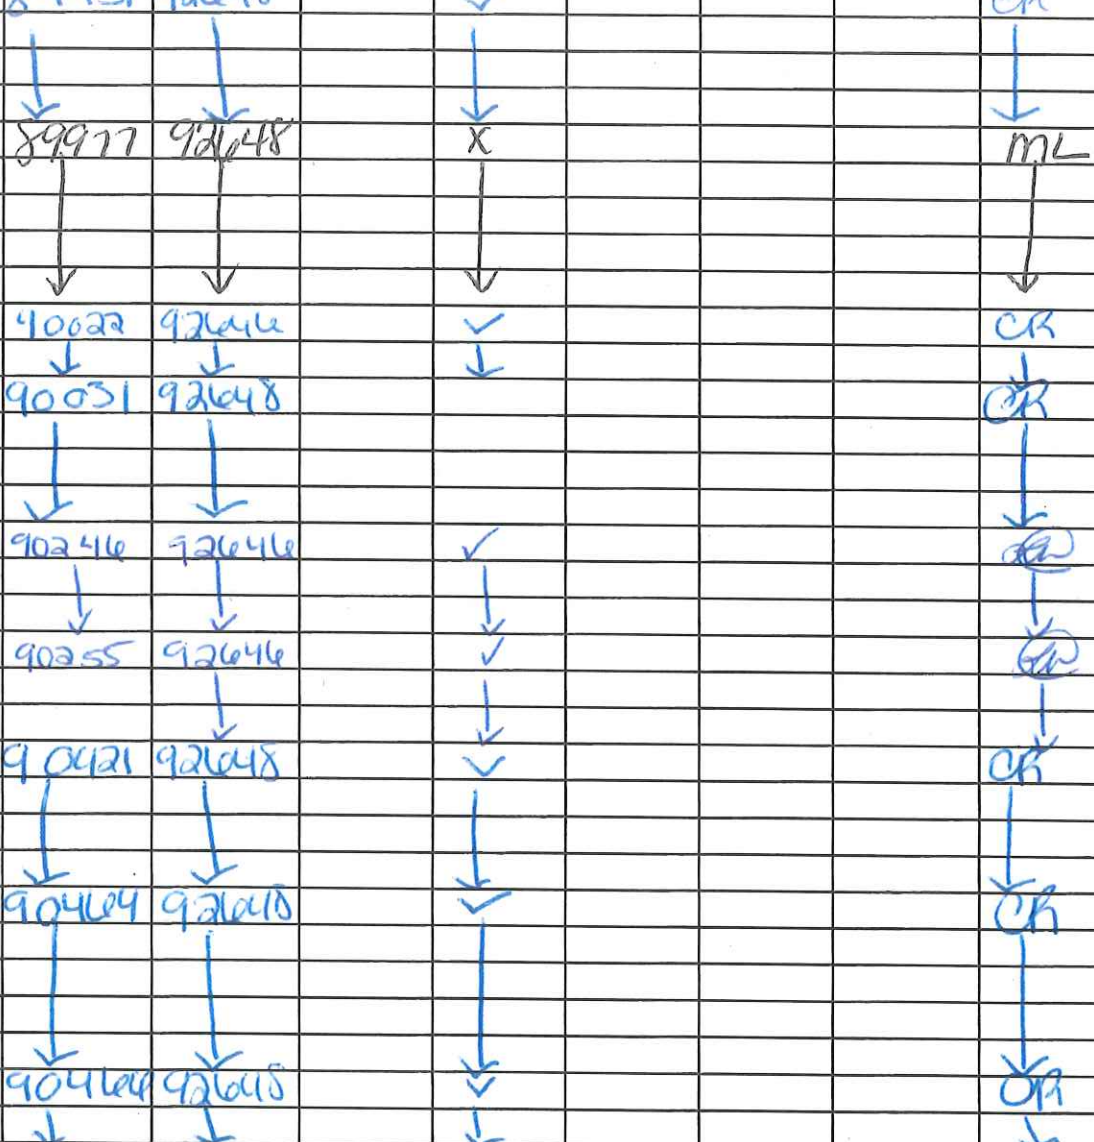 89977 92648 X ML
90022 92646 ✓ CR
90031 92648 CR
90246 92646 ✓
90255 92646 ✓
90421 92648 ✓ CR
90464 92648 ✓ CR
90464 92648 ✓ CR